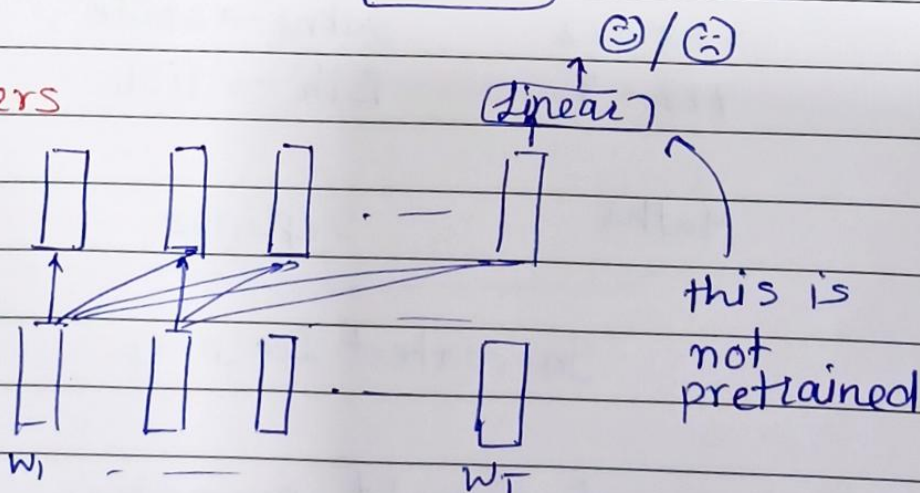 ers
Linear
this is
not
pretrained
W1
WT